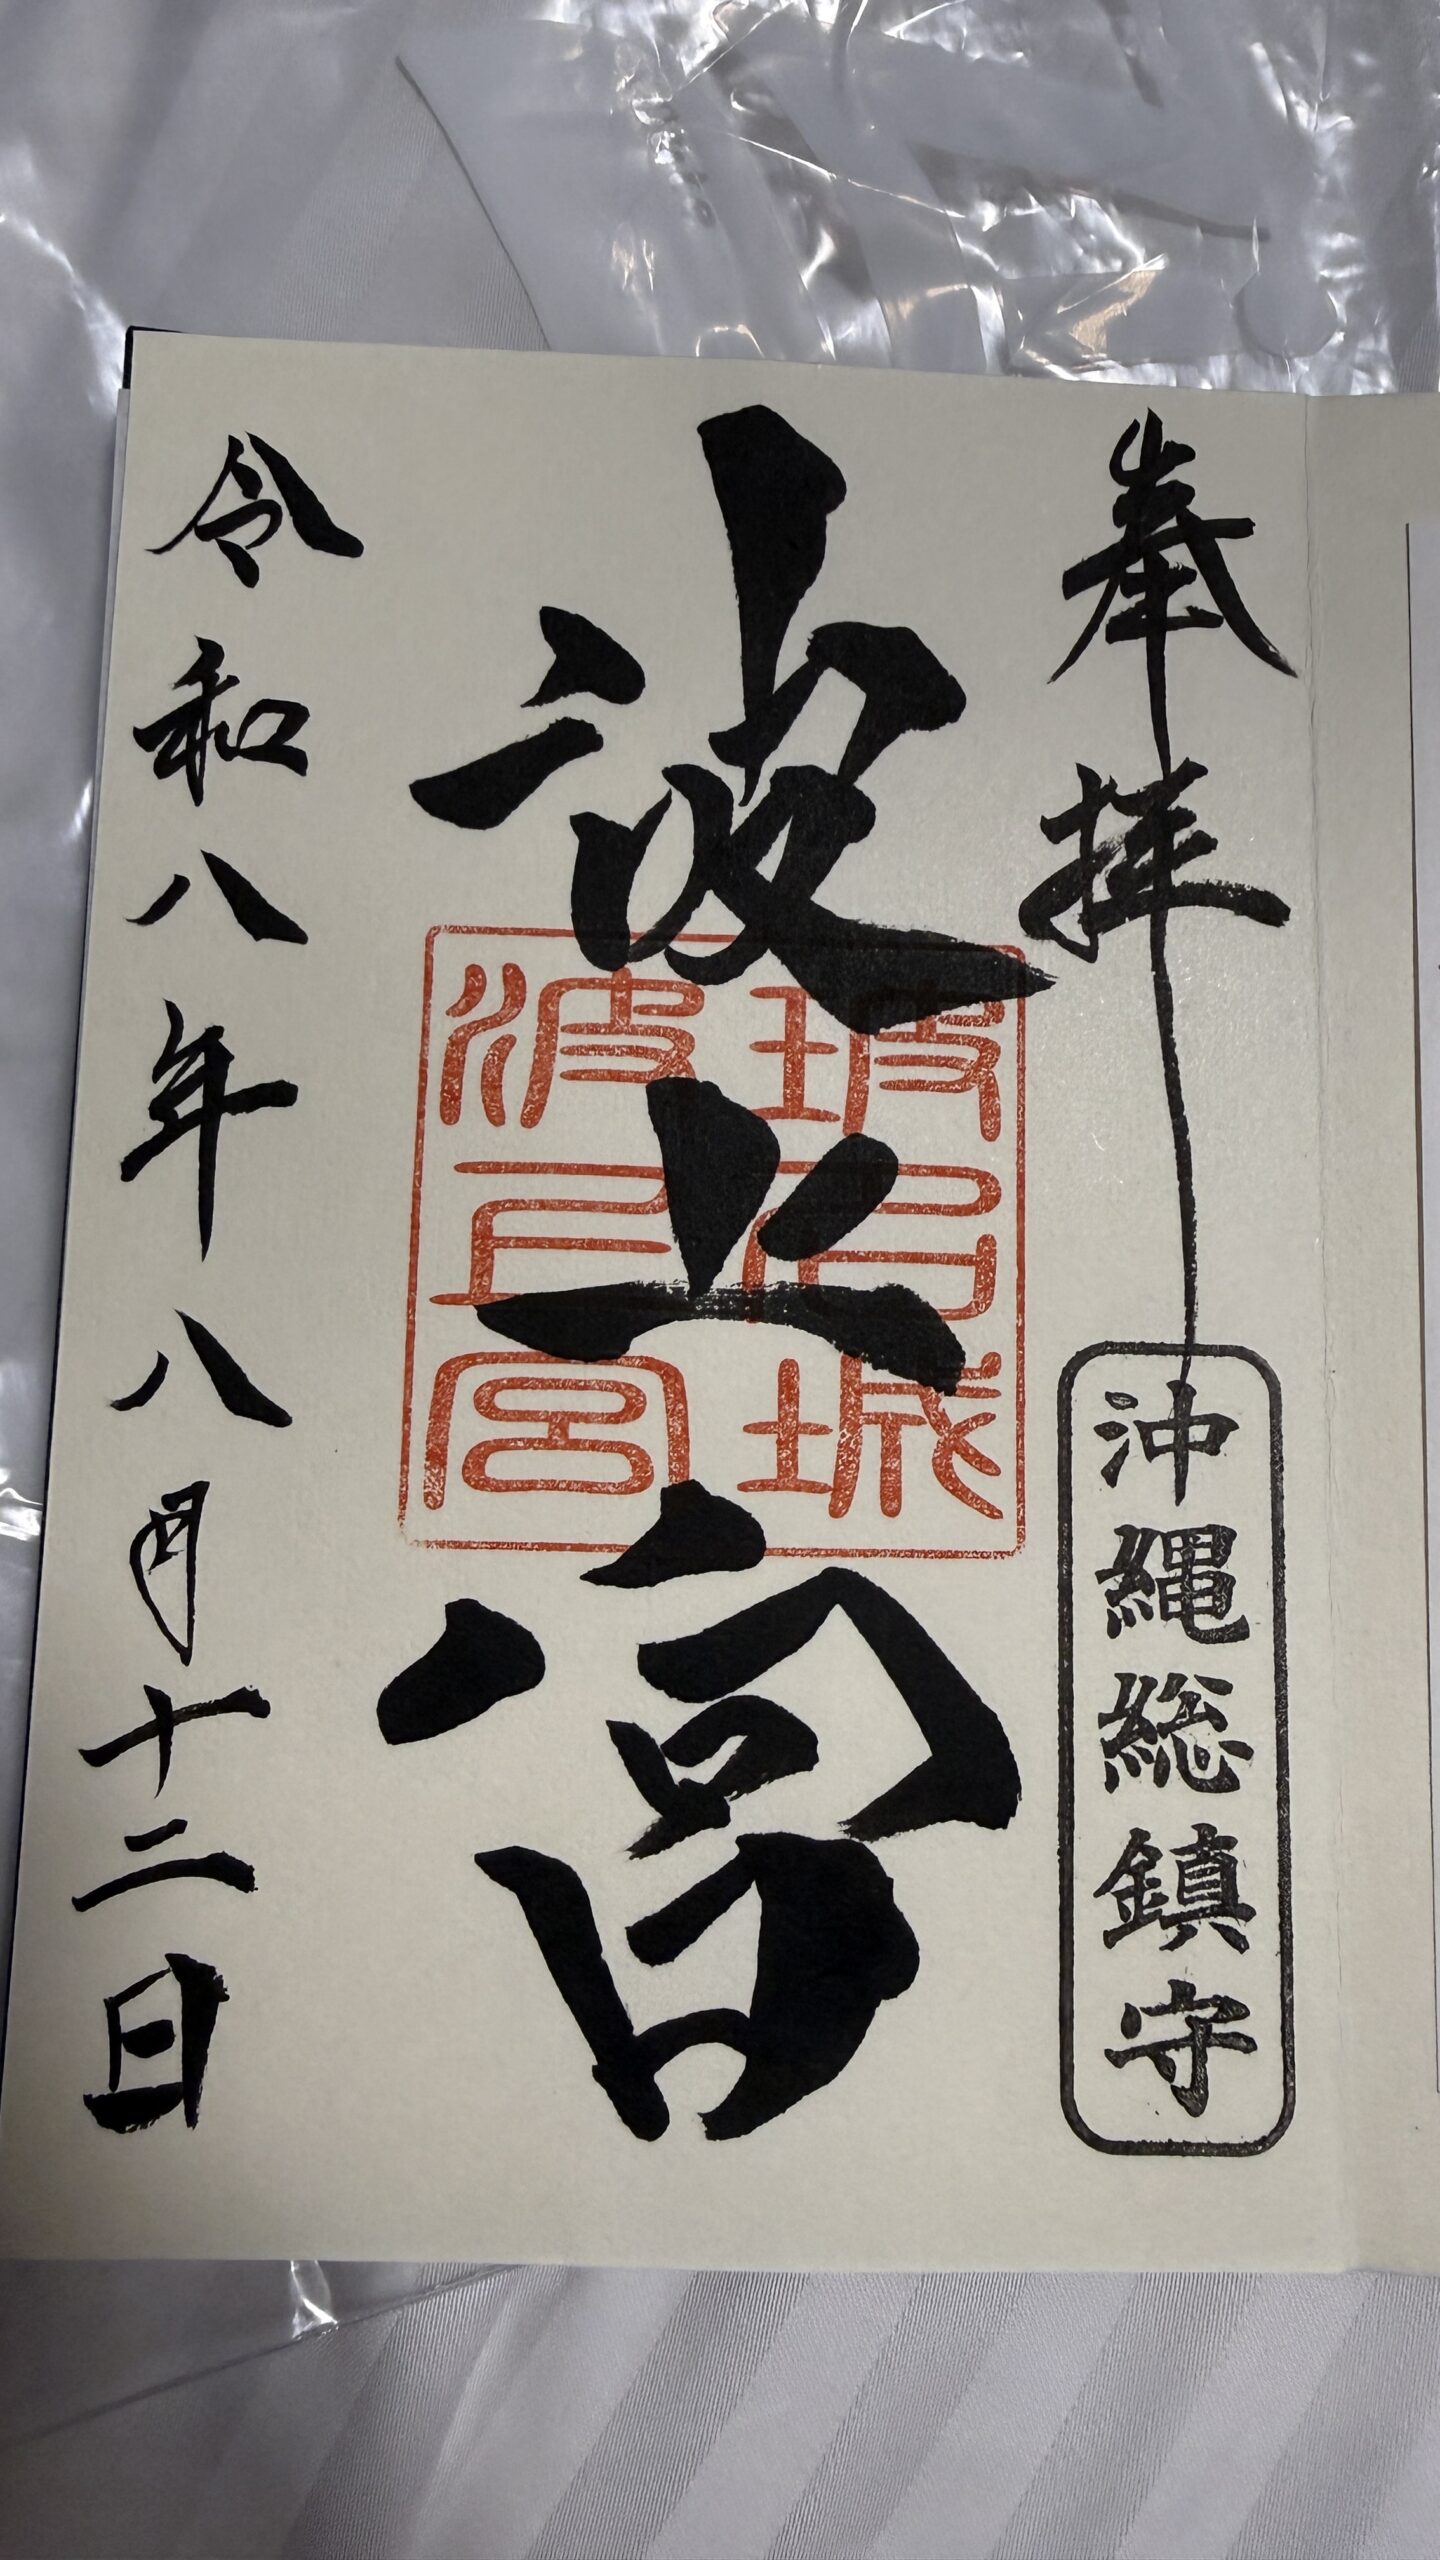 奉拝
沖縄総鎮守
波上宮
玻名城
波上宮
令和八年八月十二日